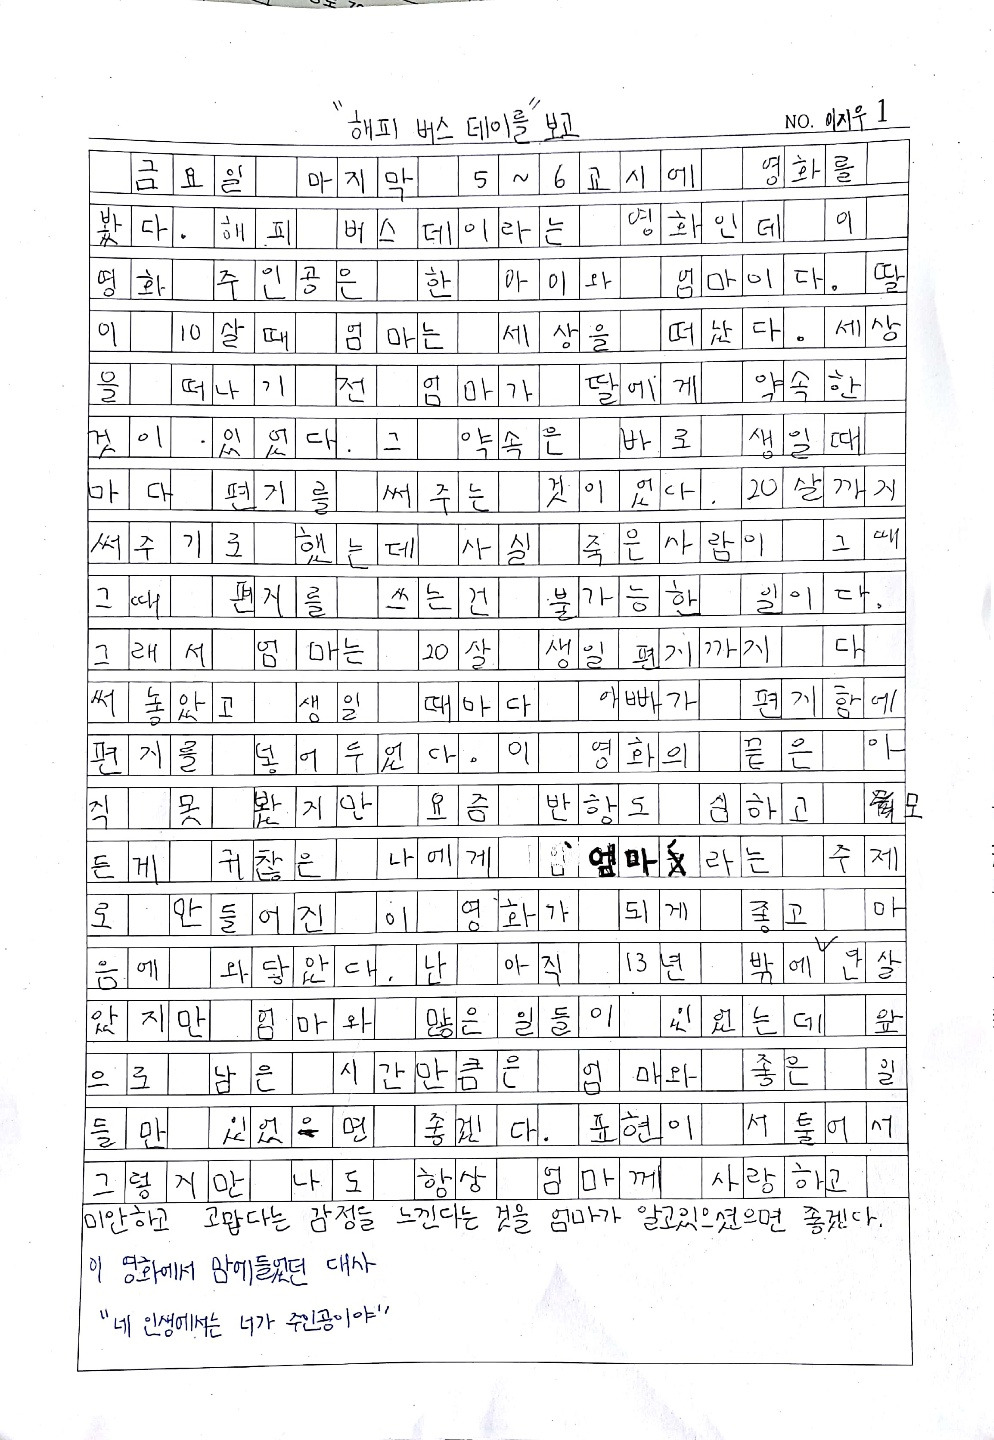 "해피 버스 데이를" 보고
NO. 이지우 1
금요일 마지막 5~6교시에 영화를
봤다. 해피 버스 데이라는 영화인데 이
영화 주인공은 한 아이와 엄마이다. 딸
이 10살때 엄마는 세상을 떠났다. 세상
을 떠나기 전 엄마가 딸에게 약속한
것이 있었다. 그 약속은 바로 생일때
마다 편지를 써주는 것이었다. 20살까지
써주기로 했는데 사실 죽은사람이 그때
그때 편지를 쓰는건 불가능한 일이다.
그래서 엄마는 20살 생일 편지까지 다
써 놓았고 생일 때마다 아빠가 편지함에
편지를 넣어두었다. 이 영화의 끝은 아
직 못 봤지만 요즘 반항도 심하고 모
든게 귀찮은 나에게 엄마라는 주제
로 만들어진 이 영화가 되게 좋고 마
음에 와닿았다. 난 아직 13년 밖에 안살
았지만 엄마와 많은 일들이 있었는데 앞
으로 남은 시간만큼은 엄마와 좋은 일
들만 있었으면 좋겠다. 표현이 서툴어서
그렇지만 나도 항상 엄마께 사랑하고
미안하고 고맙다는 감정들 느낀다는 것을 엄마가 알고있으셨으면 좋겠다.
이 영화에서 맘에들었던 대사
"네 인생에서는 너가 주인공이야"